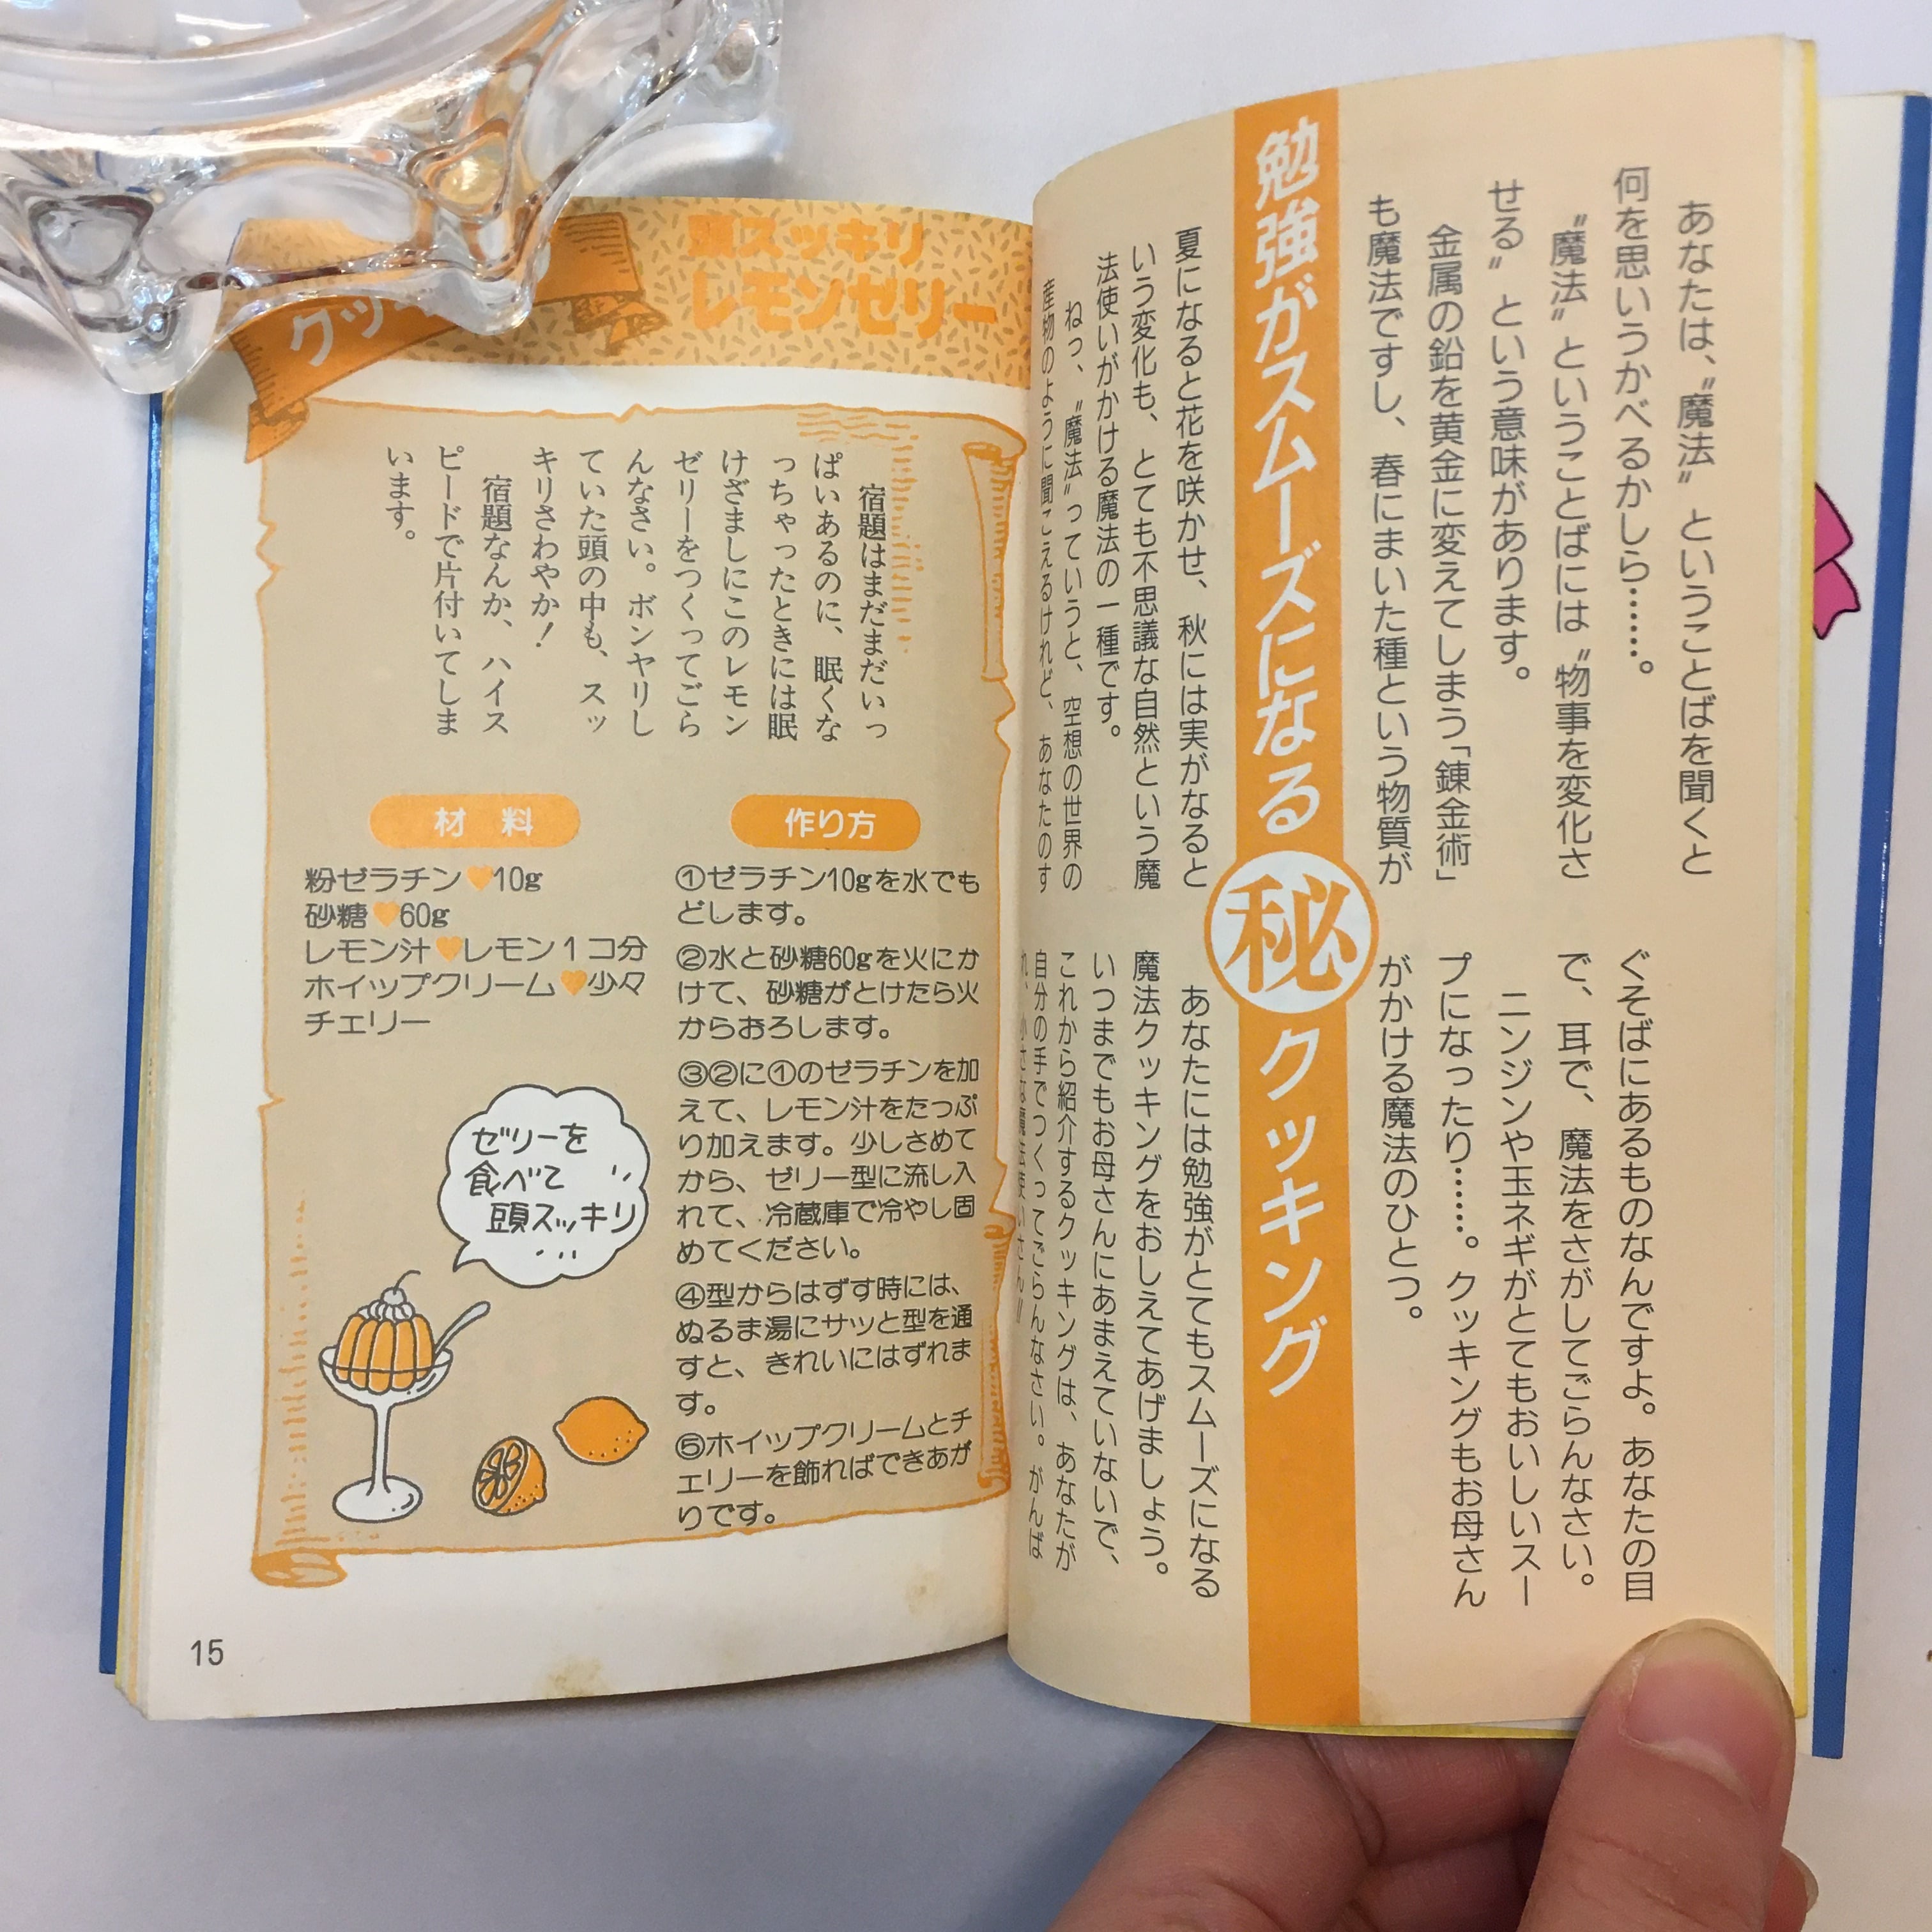 勉強がスムーズになる㊙クッキング
あなたは、〝魔法〟ということばを聞くと
何を思いうかべるかしら……。
〝魔法〟ということばには〝物事を変化さ
せる〟という意味があります。
金属の鉛を黄金に変えてしまう「錬金術」
も魔法ですし、春にまいた種という物質が
夏になると花を咲かせ、秋には実がなると
いう変化も、とても不思議な自然という魔
法使いがかける魔法の一種です。
ねっ、〝魔法〟っていうと、空想の世界の
産物のように聞こえるけれど、あなたのす
ぐそばにあるものなんですよ。あなたの目
で、耳で、魔法をさがしてごらんなさい。
ニンジンや玉ネギがとてもおいしいスー
プになったり……。クッキングもお母さん
がかける魔法のひとつ。
あなたには勉強がとてもスムーズになる
魔法クッキングをおしえてあげましょう。
いつまでもお母さんにあまえていないで、
これから紹介するクッキングは、あなたが
自分の手でつくってごらんなさい。がんば
れ、小さな魔法使いさん!!
クッキ
頭スッキリ
レモンゼリー
宿題はまだまだいっ
ぱいあるのに、眠くな
っちゃったときには眠
けざましにこのレモン
ゼリーをつくってごら
んなさい。ボンヤリし
ていた頭の中も、スッ
キリさわやか!
宿題なんか、ハイス
ピードで片付いてしま
います。
材料
粉ゼラチン♥10g
砂糖♥60g
レモン汁♥レモン1コ分
ホイップクリーム♥少々
チェリー
作り方
①ゼラチン10gを水でも
どします。
②水と砂糖60gを火にか
けて、砂糖がとけたら火
からおろします。
③②に①のゼラチンを加
えて、レモン汁をたっぷ
り加えます。少しさめて
から、ゼリー型に流し入
れて、冷蔵庫で冷やし固
めてください。
④型からはずす時には、
ぬるま湯にサッと型を通
すと、きれいにはずれま
す。
⑤ホイップクリームとチ
ェリーを飾ればできあが
りです。
ゼリーを
食べて
頭スッキリ
15